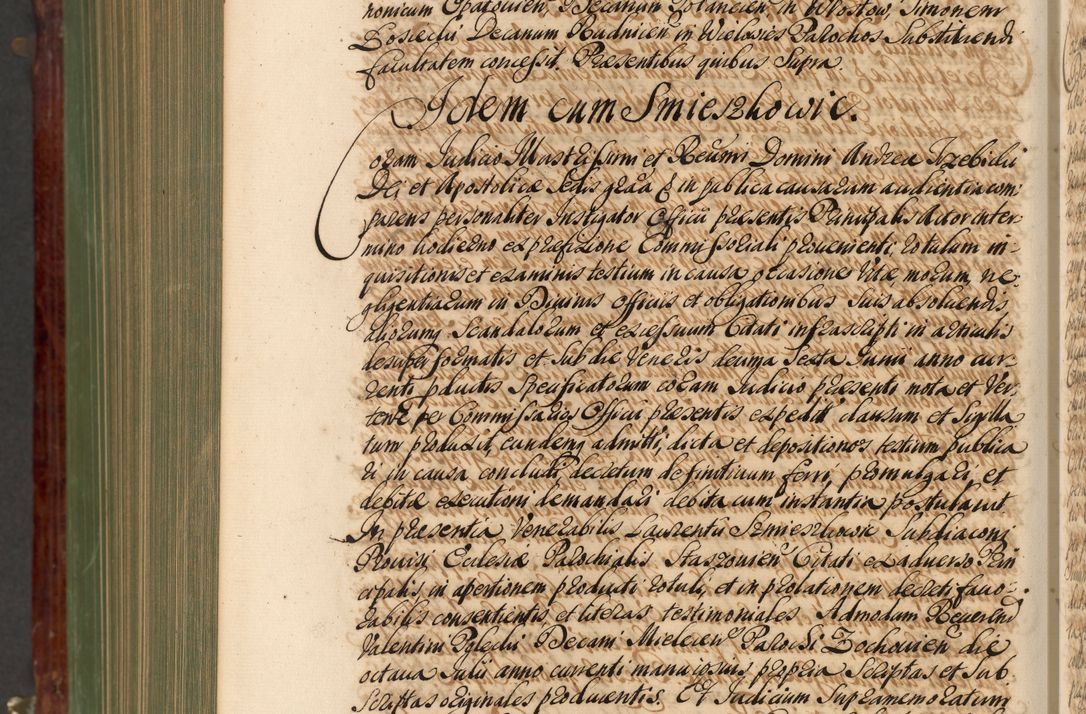 nonicum Opatovien, Decanum Polanecen in Wlostow, Simonem
Łosiecki Decanum Rudnicen in Wielowies Parochos Substituendi
facultatem concessit. Præsentibus quibus Supra.
Idem cum Smieszkowic.
Coram Iudicio Illustrissimi et Reumi Domini Andreæ Trzebicki
Dei et Apostolicæ Sedis gratia in publica causarum audientia com-
parens personaliter Instigator Officii præsentis Principalis Actor inter
mino hodierno ex præfixione Commissoriali provenienti, rotulum in-
quisitionis et examinis testium in causa occasione Vitæ, morum, ne-
gligentiarum in Divinis officiis et obligationibus suis absolvendis,
aliorumq Scandalorum et excessuum Citati infrascripti in articulis
desuper formatis et Sub die Veneris decima Sexta Iunii anno cur-
renti productis Specificatorum coram Iudicio præsenti nota et Ver-
tente per Commissarios Officii præsentis expediti clausum et Sigilla
tum produxit, eundemq admitti, dicta et depositiones testium publica
ri in causa concludi decretum definitivum ferri, promulgari, et
debitæ executioni demandari debita cum instantia postulavit
In præsentia Venerabilis Laurentii Smieszkowic Subdiaconi
Provisi Ecclesiæ Parochialis Staszovien Citati ex adverso Prin
cipalis, in apertionem producti rotuli, et in prolationem decreti favo-
rabilis consentientis, et literas testimoniales Admodum Reverend
Valentini Decani Mielecen Parochi Zochovien die
octava Iulii anno currenti manu ipsius propria Scriptas et Sub
Scriptas originales producentis. Et Iudicium Supramemoratum